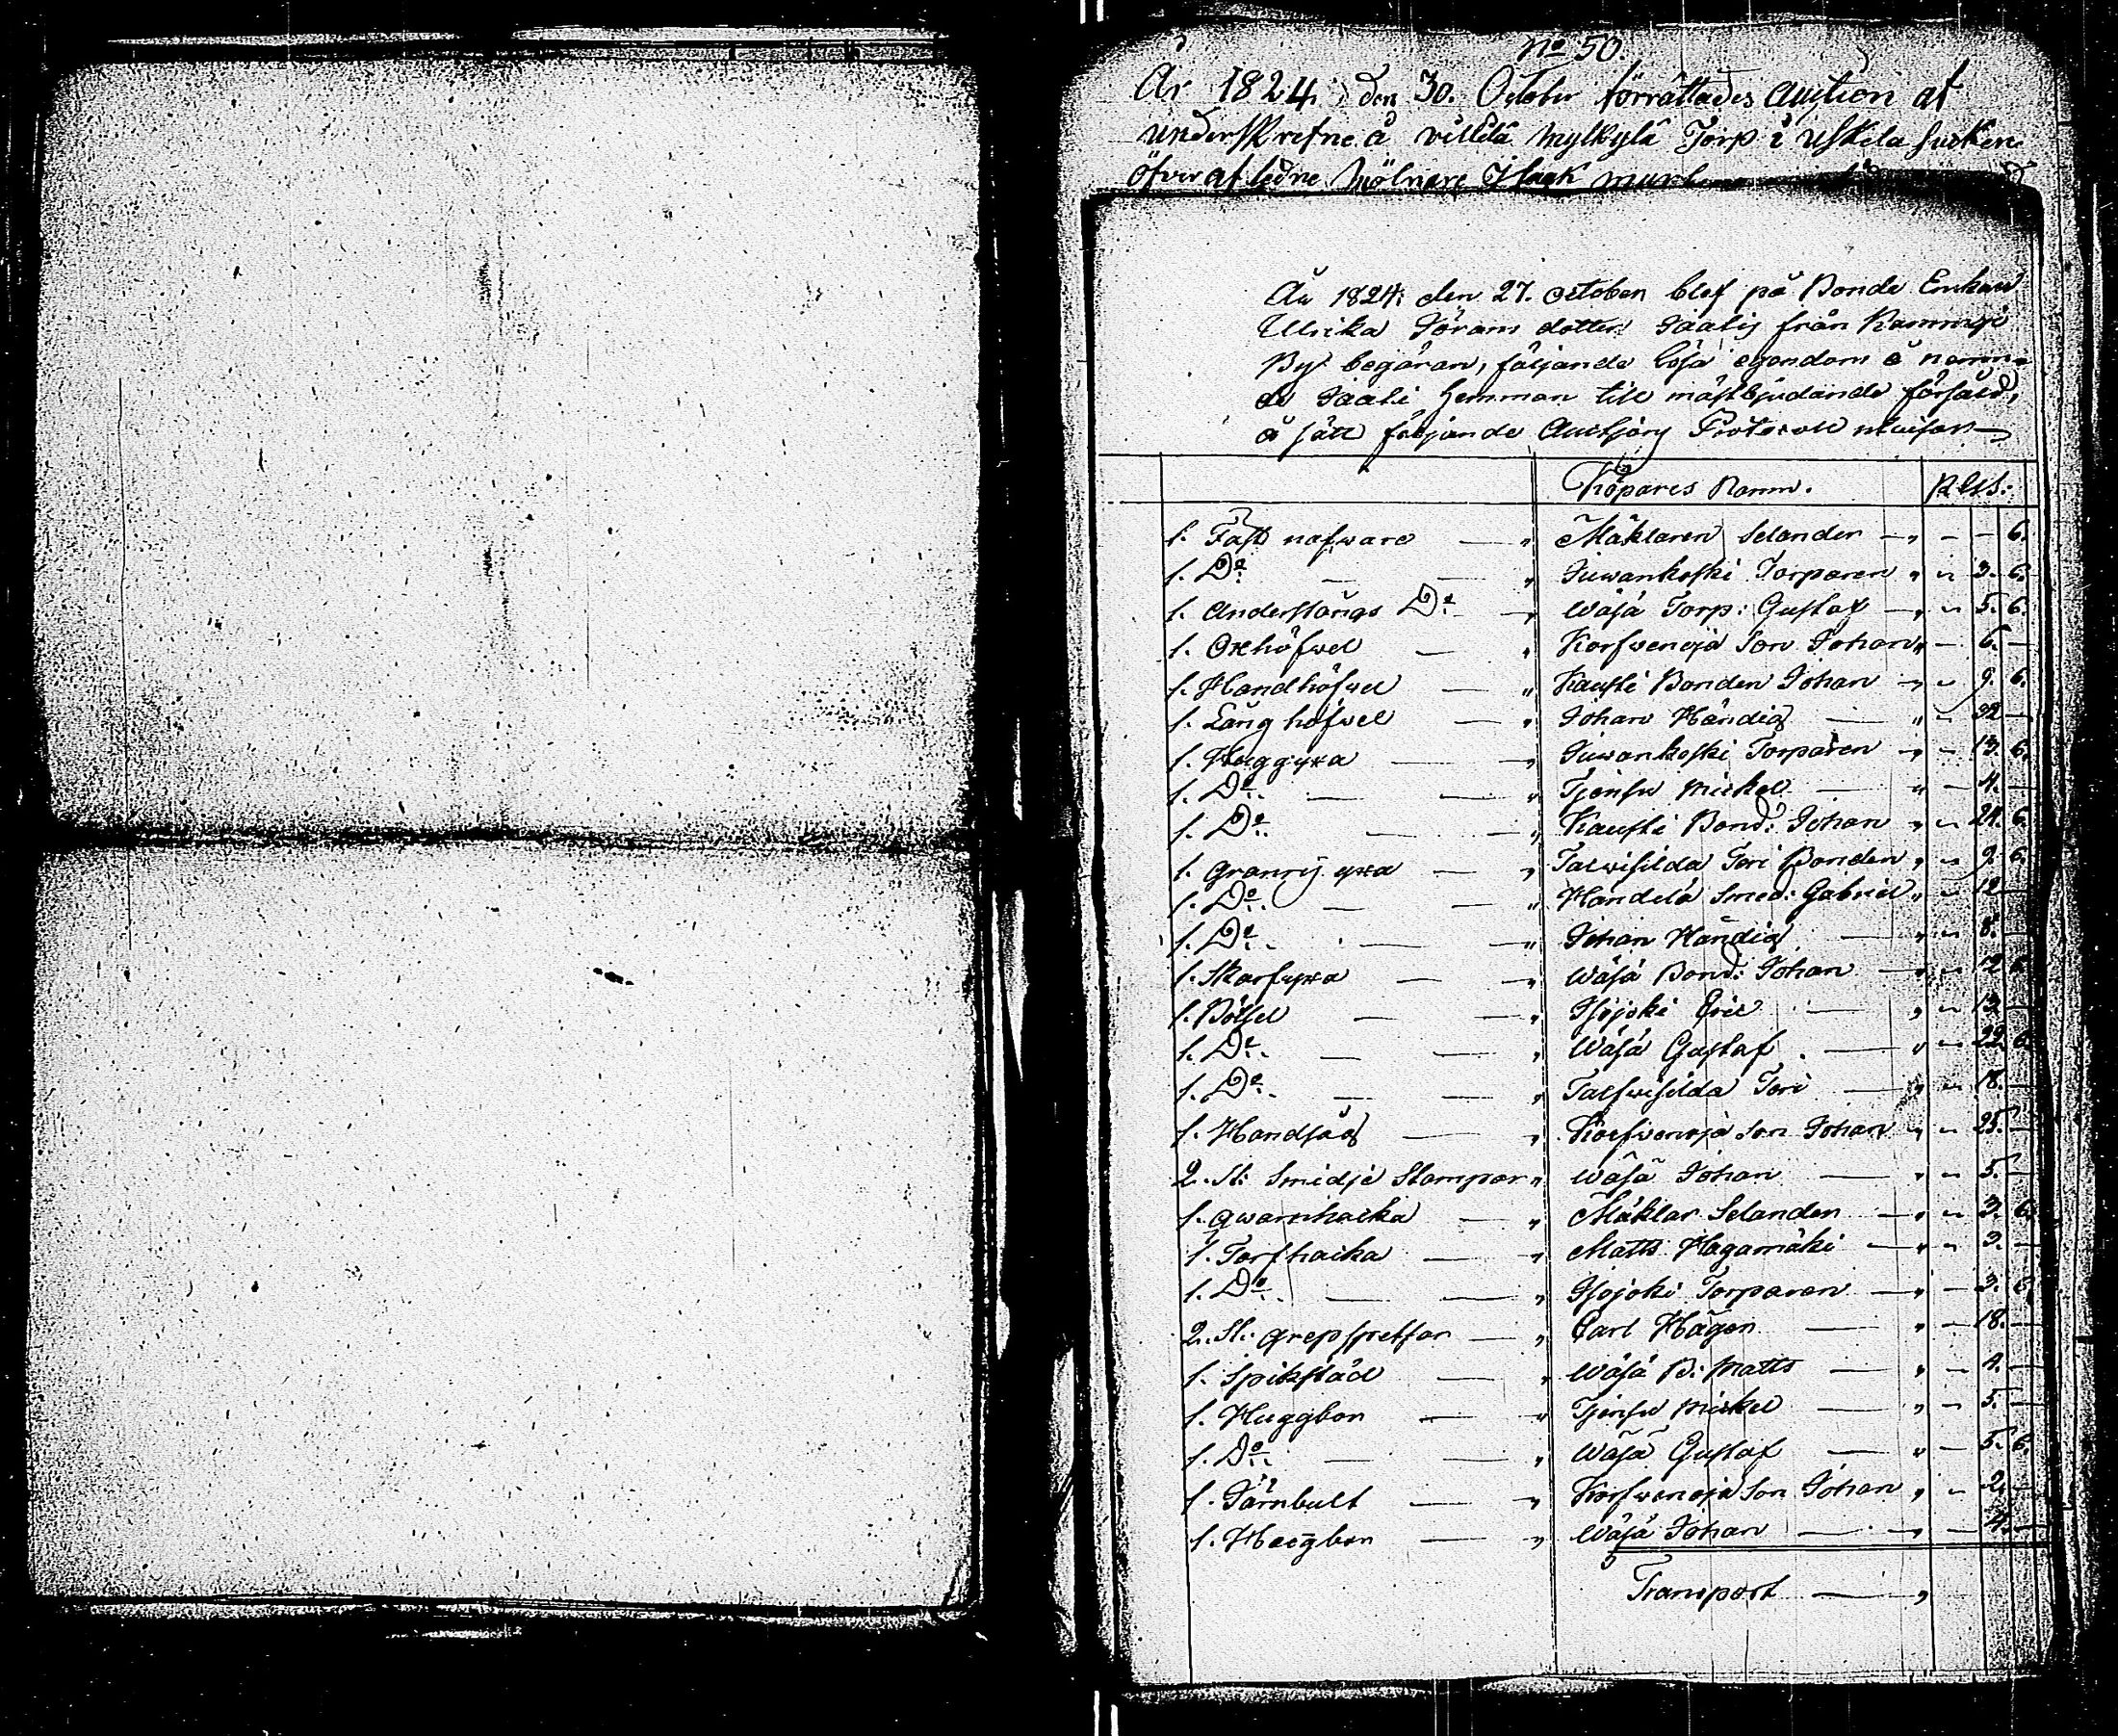 No 50.
År 1824 den 30. October förrättades Auction af
underskrefne å villilä Mylkylä Torp i Uskela Sucken
öfver afledne Mölnare Isaak
År 1824 den 27. October blef på Bonde Enkan
Ulrika Jörans dotter Jaatis från
By begäran, följande lösa egendom å namn-
de Jaali hemman till mästbjudande försåld,
å sätt följande Auctjons Protocoll utwisar
Köpares Namn. Rbls:
1. Fast nafware — " Mäklaren Selander — " - - 6.
1. Do — — " Juwankoski Torparen " " 3. 6.
1. Anderstångs Do — " Wäsä Torp: Gustaf — " 5. 6.
1. Oxhöfwel — " Korfwenojá Son Johan " — 6. —
1. Handhöfwel — " Kausti Bonden Johan — " 9. 6.
1. Lång höfwel — " Johan Händig — " " 32 —
1. Huggyxa — " Juwankoski Torparen — " — 13. 6.
1. Do — — " Tjensw Mickel — " — 4. —
1. Do — — " Kausti Bond: Johan " " 21. 6.
1. Granrijyxa — " Talwisilda Jeri Bonden " " 9. 6.
1. Do — — " Handelá Smed: Gabriel " " 12 —
1. Do — — " Johan Händig — " " 8. —
1. Skarfyxa — " Wäsä Bond: Johan — " " 12 6
1. Bötsel — — " Isojoki Eric — " " 13. —
1. Do — — " Wäsä Gustaf — " " 22. 6
1. Do — — " Talfwisilda Jeri — " " 18. —
1. Handsåg — " Korfwenoja Son Johan " " 25. —
2. St: Smidje Stampar " Wäsä Johan — " " 5. —
1. Qwarnhacka — " Mäklar Selander — " " 3. 6
1. Torfhacka — " Matts Hagamäki — " " 3. —
1. Do — — " Isojoki Torparen — " — 3. 6
2. St: grepspretsar — " Carl Hägen — " — 18. —
1. Spikstäd — " Wäsä B: Matts — " — —
1. Huggbon — " Tjensw Mickel — " — 5. —
1. Do — — " Wäsä Gustaf — " — 5. 6.
1. Järnbult — " Korfwenoja Son Johan " — 2. —
1. — " Wäsä Johan — " — 4. —
Transport — "